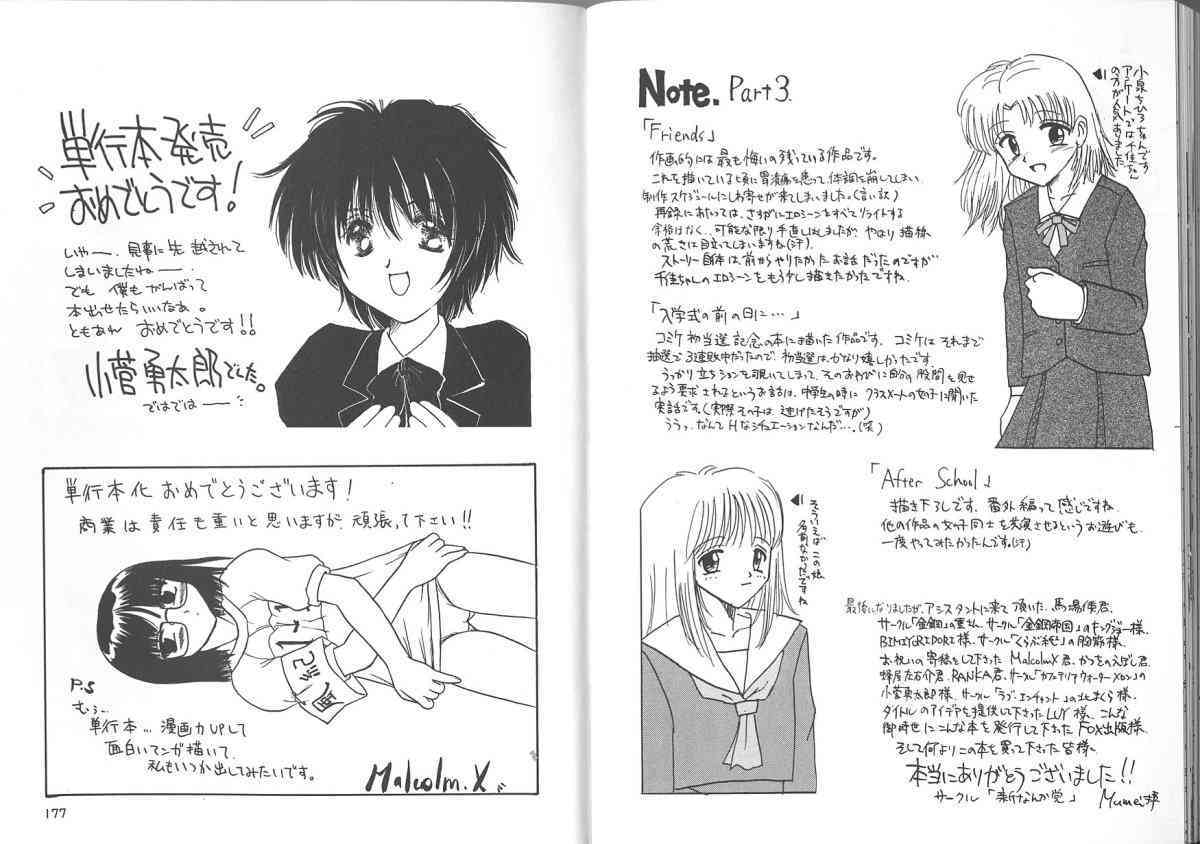 Note. Part 3.
小泉ちひろちゃんです
アンケートでは千佳ちゃん
の方が人気ありました
「Friends」
作画的には最も悔いの残っている作品です。
これを描いている頃に胃潰瘍を患って、体調を崩してしまい
制作スケジュールにしわ寄せが来てしまいました。(言い訳)
再録にあたっては、さすがにエロシーンをすべてリライトする
余裕はなく、可能な限り手直しはしましたが、やはり描線
の荒さは目立ってしまいますね(汗)
ストーリー自体は前からやりたかったお話だったのですが
千佳ちゃんのエロシーンをもう少し描きたかったですね。
「入学式の前の日に…」
コミケ初当選記念の本に描いた作品です。コミケはそれまで
抽選で3連敗中だったので、初当選は、かなり嬉しかったです。
うっかり立ちションを覗いてしまって、そのおわびに自分の股間を見せ
るよう要求されるというお話は、中学生の時にクラスメートの女の子に聞いた
実話です。(実際その子は逃げたそうですが)
ううっ、なんてHなシチュエーションなんだ…。(笑)
そういえばこの娘
名前なかったですね
「After School」
描き下ろしです。番外編って感じですね
他の作品の女の子同士を共演させるというお遊びも、
一度やってみたかったんです。(汗)
最後になりましたが、アシスタントに来て頂いた、馬場
サークル「金鋼」の サークル「金鋼帝国」のキングジョー様、
BIMIGRIPORI様、サークル「くらぶ
お祝いの寄稿をして下さった MalcolmX君、かつをのえぼし君、
蜂屋左右介君、RANKA君、サークル「カフェテリアウォーターメロン」の
小菅勇太郎様、サークル「ラブ・エンチャント」の北まくら様、
タイトルのアイデアを提供して下さったLUY様、こんな
御時世にこんな本を発行して下さったFOX出版様、
そして何よりこの本を買って下さった皆様、
本当にありがとうございました!!
サークル「新なんか党」 Mumei
単行本発売
おめでとうです!
いやー、見事に先越されて
しまいましたねー。
でも 僕もがんばって
本出せたらいいなぁ。
ともあれ おめでとうです!!
小菅勇太郎でした。
ではではー
単行本化 おめでとうございます!
商業は責任も重いと思いますが、頑張って下さい!!
P.S
むぅ…
単行本…漫画力UPして
面白いマンガ描いて、
私もいつか出してみたいです。
Malcolm.X
177